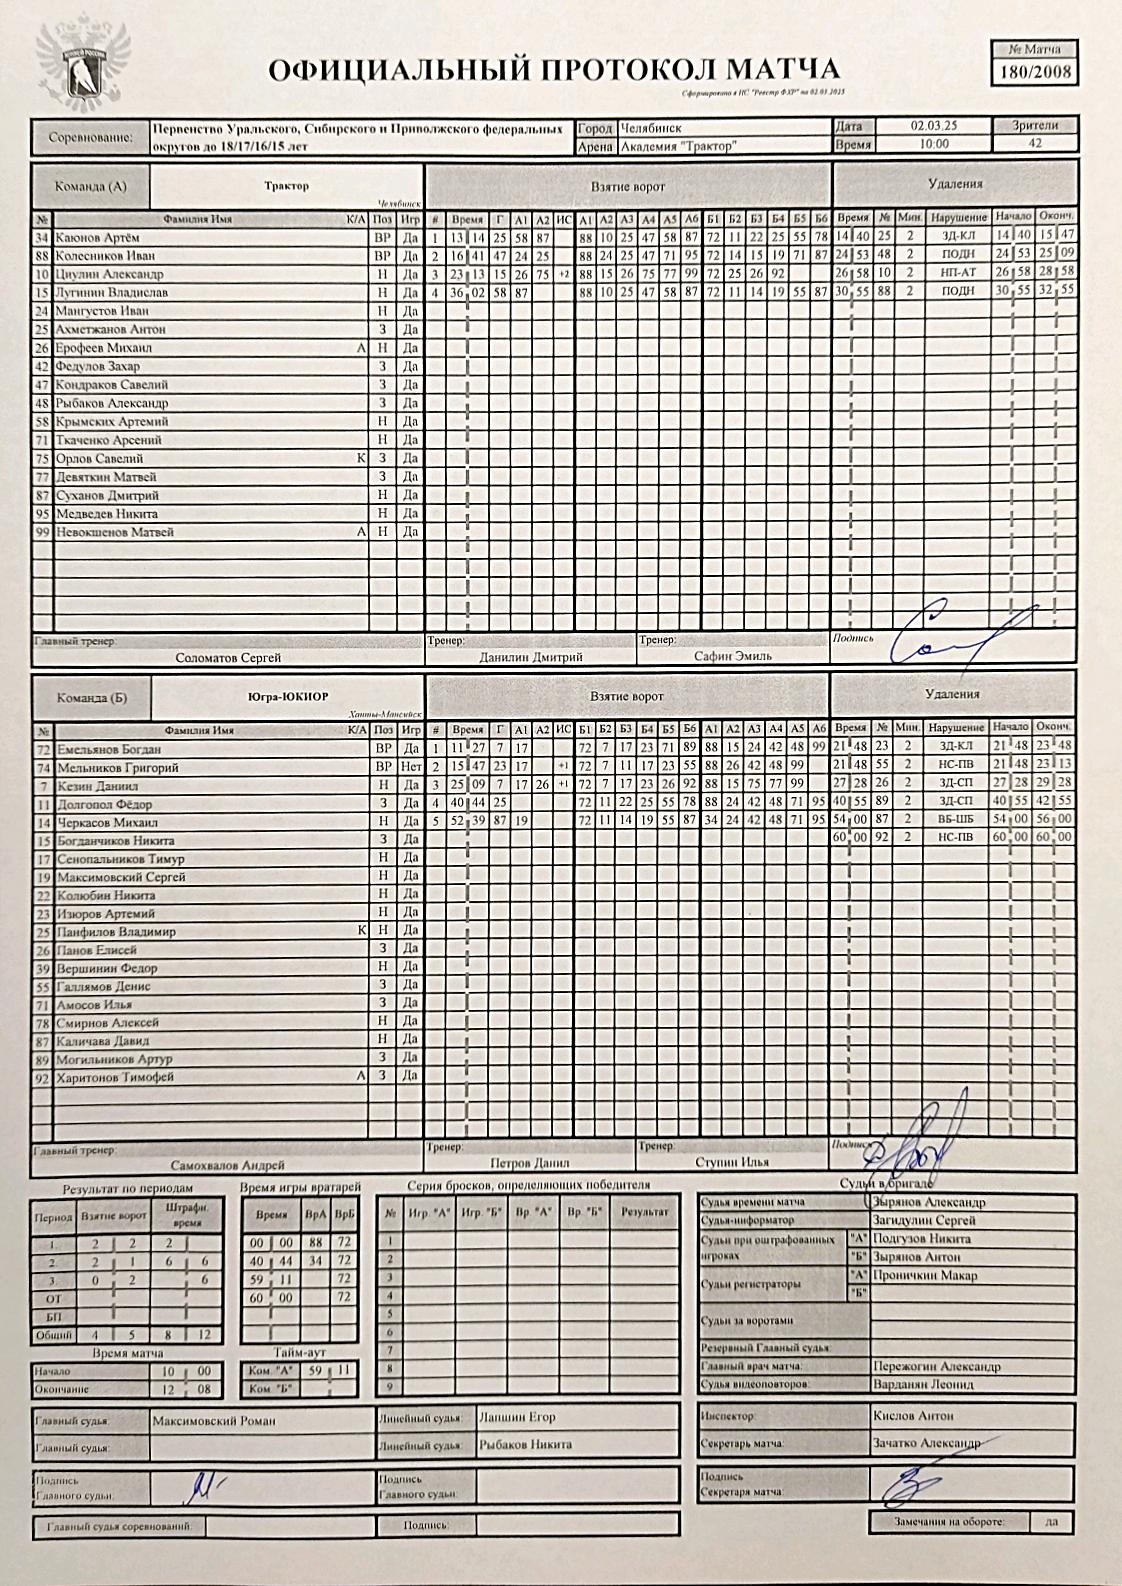 № Матча
180/2008
ОФИЦИАЛЬНЫЙ ПРОТОКОЛ МАТЧА
Сформировано в ИС "Реестр ФХР" на 02.03.2025
Соревнование: Первенство Уральского, Сибирского и Приволжского федеральных округов до 18/17/16/15 лет
Город Челябинск Дата 02.03.25 Зрители
Арена Академия "Трактор" Время 10:00 42
Команда (А) Трактор Челябинск Взятие ворот Удаления
№ Фамилия Имя К/А Поз Игр # Время Г А1 А2 ИС А1 А2 А3 А4 А5 А6 Б1 Б2 Б3 Б4 Б5 Б6 Время № Мин. Нарушение Начало Оконч.
34 Каюнов Артём ВР Да 1 13 14 25 58 87 88 10 25 47 58 87 72 11 22 25 55 78 14 40 25 2 ЗД-КЛ 14 40 15 47
88 Колесников Иван ВР Да 2 16 41 47 24 25 88 24 25 47 71 95 72 14 15 19 71 87 24 53 48 2 ПОДН 24 53 25 09
10 Циулин Александр Н Да 3 23 13 15 26 75 +2 88 15 26 75 77 99 72 25 26 92 26 58 10 2 НП-АТ 26 58 28 58
15 Лугинин Владислав Н Да 4 36 02 58 87 88 10 25 47 58 87 72 11 14 19 55 87 30 55 88 2 ПОДН 30 55 32 55
24 Мангустов Иван Н Да
25 Ахметжанов Антон З Да
26 Ерофеев Михаил А Н Да
42 Федулов Захар З Да
47 Кондраков Савелий З Да
48 Рыбаков Александр З Да
58 Крымских Артемий Н Да
71 Ткаченко Арсений Н Да
75 Орлов Савелий К З Да
77 Девяткин Матвей З Да
87 Суханов Дмитрий Н Да
95 Медведев Никита Н Да
99 Невокшенов Матвей А Н Да
Главный тренер: Тренер: Тренер: Подпись
Соломатов Сергей Данилин Дмитрий Сафин Эмиль
Команда (Б) Югра-ЮКИОР Ханты-Мансийск Взятие ворот Удаления
№ Фамилия Имя К/А Поз Игр # Время Г А1 А2 ИС Б1 Б2 Б3 Б4 Б5 Б6 А1 А2 А3 А4 А5 А6 Время № Мин. Нарушение Начало Оконч.
72 Емельянов Богдан ВР Да 1 11 27 7 17 72 7 17 23 71 89 88 15 24 42 48 99 21 48 23 2 ЗД-КЛ 21 48 23 48
74 Мельников Григорий ВР Нет 2 15 47 23 17 +1 72 7 11 17 23 55 88 26 42 48 99 21 48 55 2 НС-ПВ 21 48 23 13
7 Кезин Даниил Н Да 3 25 09 7 17 26 +1 72 7 17 23 26 92 88 15 75 77 99 27 28 26 2 ЗД-СП 27 28 29 28
11 Долгопол Фёдор З Да 4 40 44 25 72 11 22 25 55 78 88 24 42 48 71 95 40 55 89 2 ЗД-СП 40 55 42 55
14 Черкасов Михаил Н Да 5 52 39 87 19 72 11 14 19 55 87 34 24 42 48 71 95 54 00 87 2 ВБ-ШБ 54 00 56 00
15 Богданчиков Никита З Да 60 00 92 2 НС-ПВ 60 00 60 00
17 Сенопальников Тимур Н Да
19 Максимовский Сергей Н Да
22 Колюбин Никита Н Да
23 Изюров Артемий Н Да
25 Панфилов Владимир К Н Да
26 Панов Елисей З Да
39 Вершинин Федор Н Да
55 Галлямов Денис З Да
71 Амосов Илья З Да
78 Смирнов Алексей Н Да
87 Каличава Давид Н Да
89 Могильников Артур З Да
92 Харитонов Тимофей А З Да
Главный тренер: Тренер: Тренер: Подпись
Самохвалов Андрей Петров Данил Ступин Илья
Результат по периодам
Период Взятие ворот Штрафн. время
1. 2 2 2
2. 2 1 6 6
3. 0 2 6
ОТ
БП
Общий 4 5 8 12
Время матча
Начало 10 00
Окончание 12 08
Время игры вратарей
Время ВрА ВрБ
00 00 88 72
40 44 34 72
59 11 72
60 00 72
Тайм-аут
Ком. "А" 59 11
Ком. "Б"
Серия бросков, определяющих победителя
№ Игр. "А" Игр. "Б" Вр. "А" Вр. "Б" Результат
1
2
3
4
5
6
7
8
9
Судьи в бригаде
Судья времени матча Зырянов Александр
Судья-информатор Загидулин Сергей
Судьи при оштрафованных игроках "А" Подгузов Никита
"Б" Зырянов Антон
Судьи регистраторы "А" Проничкин Макар
"Б"
Судьи за воротами
Резервный Главный судья:
Главный врач матча: Пережогин Александр
Судья видеоповторов: Варданян Леонид
Главный судья: Максимовский Роман Линейный судья: Лапшин Егор Инспектор: Кислов Антон
Главный судья: Линейный судья: Рыбаков Никита Секретарь матча: Зачатко Александр
Подпись Главного судьи: Подпись Главного судьи: Подпись Секретаря матча:
Главный судья соревнований: Подпись: Замечания на обороте: да